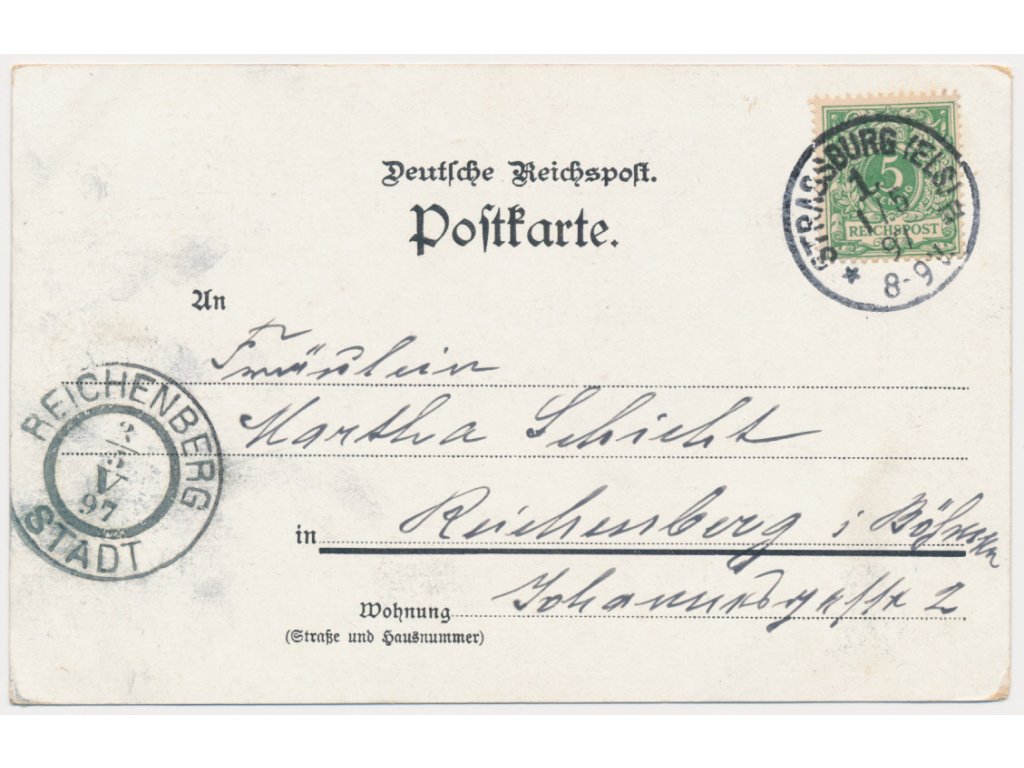 Deutsche Reichspost.
Postkarte.
STRASSBURG (ELS)
1.
1 5
97
8-9
5
REICHSPOST
An
Fräulein
Martha Schicht
REICHENBERG
STADT
3
V
97
in Reichenberg i. Böhmen
Wohnung Johannesgasse 2
(Straße und Hausnummer)